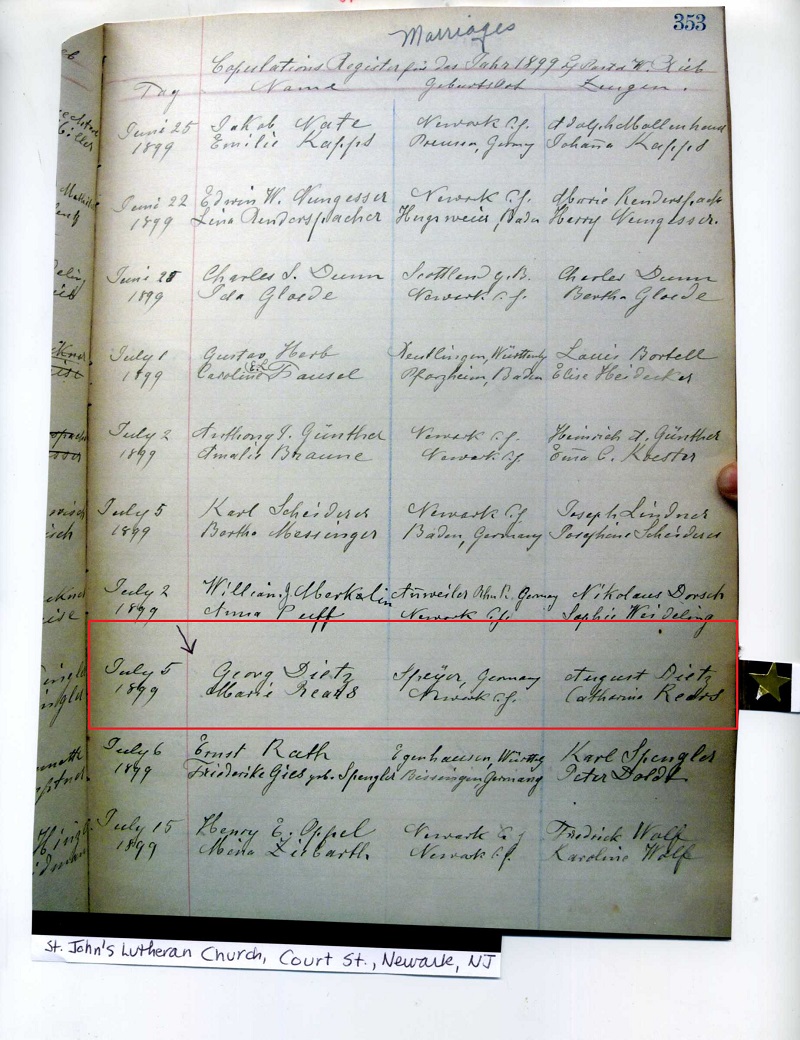 353
Marriages
Copulations Register für das Jahr 1899 Pastor W.
Tag Name Geburtsort Zeugen.
Juni 25 Jakob Nate Newark N.J. Adolph Mollenhauer
1899 Emilie Kapps Preusen, Germy Johanna Kapps
Juni 22 Edwin W. Nungesser Newark N.J. Marie Renderspacher
1899 Lina Renderspacher Hugsweier, Baden Harry Nungesser.
Juni 28 Charles S. Dunn Scottland G.B. Charles Dunn
1899 Ida Gloede Newark N.J. Bertha Gloede
July 1 Gustav Herb Reutlingen, Württby Louis Bortell
1899 Caroline Fausel Pforzheim, Baden Elise Heidecker
July 2 Anthony J. Günther Newark N.J. Heinrich A. Günther
1899 Amalie Braune Newark N.J. Ema C. Koester
July 5 Karl Scheiderer Newark N.J. Joseph Lindner
1899 Bertha Messinger Baden, Germany Josephine Scheiderer
July 2 William J. Merkalin Anweiler Germany Nikolaus Dorsch
1899 Anna Puff Newark N.J. Sophie Weideling
July 5 Georg Dietz Speyer, Germany August Dietz
1899 Marie Rears Newark N.J. Catharine Rears
July 6 Ernst Rath Egenhausen, Württbg Karl Spengler
1899 Friederike Gies geb. Spengler Bissingen, Germany Peter Doldt
July 15 Henry E. Oppel Newark N.J. Fredrick Wolf
1899 Mina Zirbarth Newark N.J. Karoline Wolf
St. John's Lutheran Church, Court St., Newark, NJ